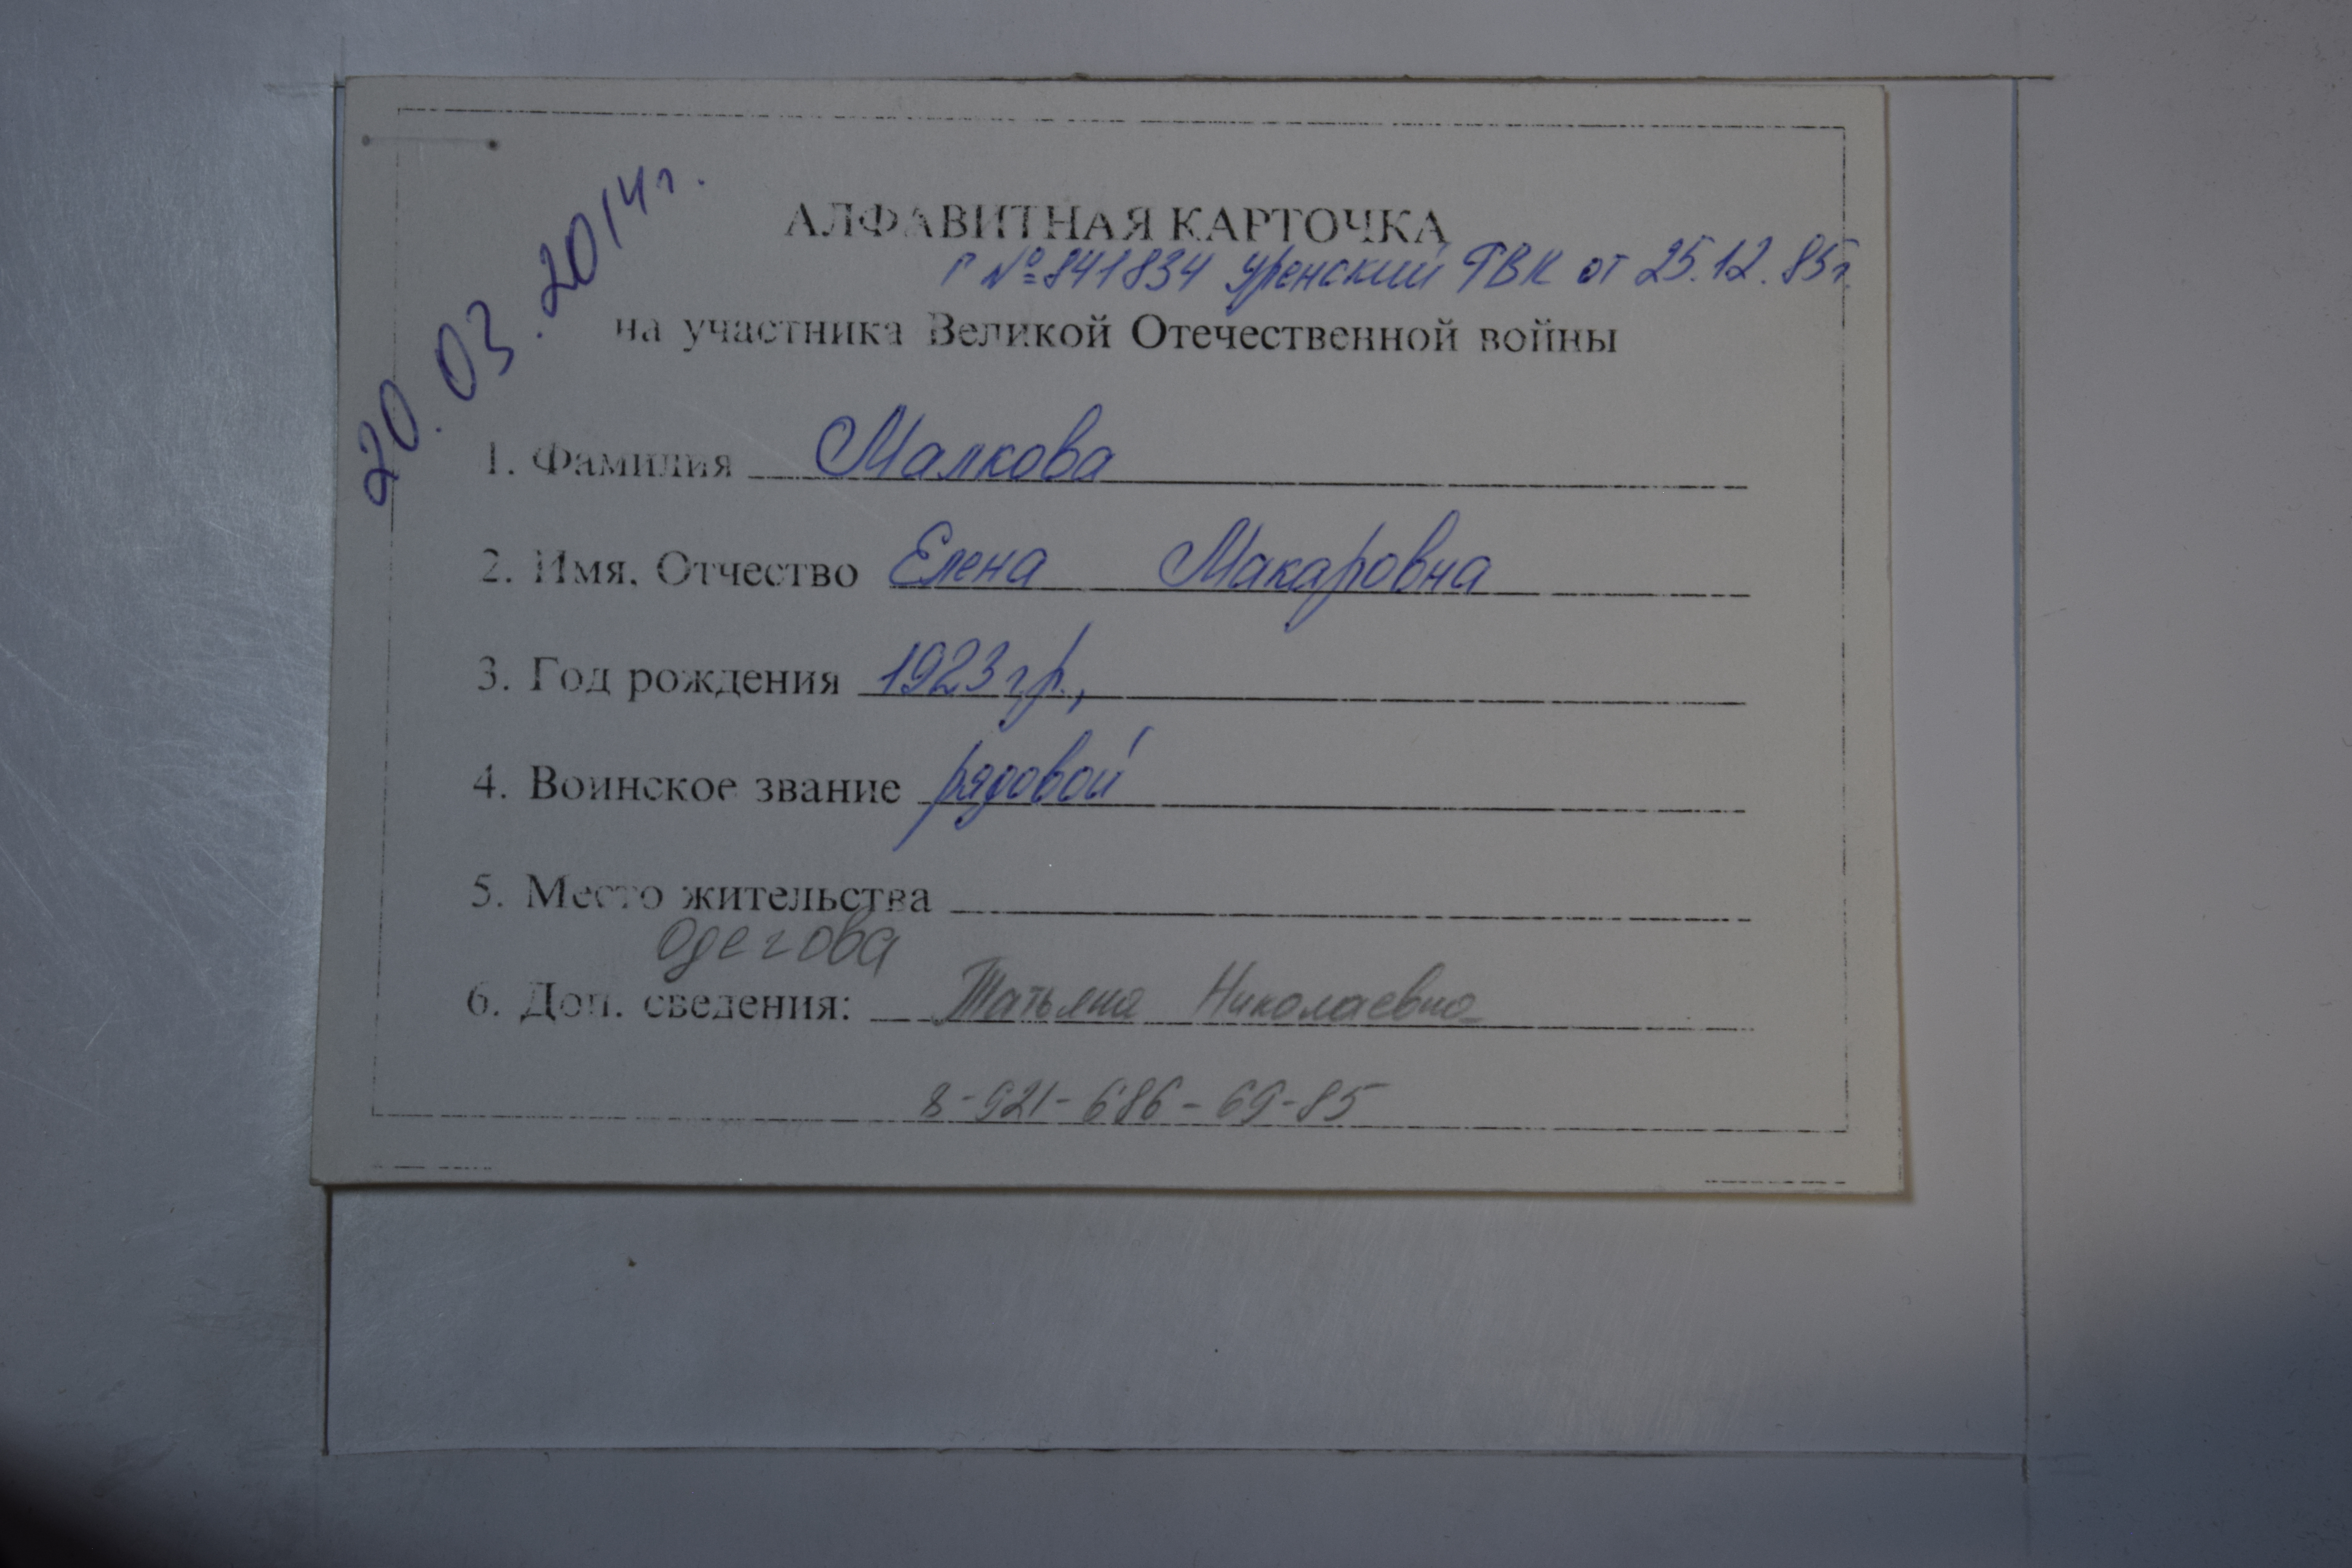 20.03.2014г.
АЛФАВИТНАЯ КАРТОЧКА
Г №841834 Уренский РВК от 25.12.85г.
на участника Великой Отечественной войны
1. Фамилия Малкова
2. Имя, Отчество Елена Макаровна
3. Год рождения 1923 г.р.,
4. Воинское звание рядовой
5. Место жительства
Одегова
6. Доп. сведения: Татьяна Николаевна
8-921-686-69-85